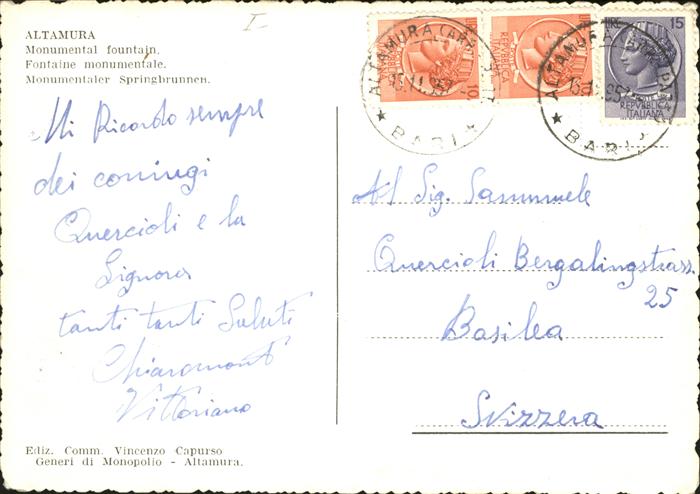 I-
ALTAMURA
Monumental fountain.
Fontaine monumentale.
Monumentaler Springbrunnen.
Mi Ricordo sempre
dei coniugi
Quercioli e la
Signora
tanti tanti Saluti
Chiaromonte
Vittoriano
Ediz. Comm. Vincenzo Capurso
Generi di Monopolio - Altamura.
LIRE 15
REPVBBLICA
ITALIANA
ALTAMURA
BARI
ALTAMURA
BARI
Al Sig. Sanmuele
Quercioli Bergalingstrass.
25
Basilea
Svizzera